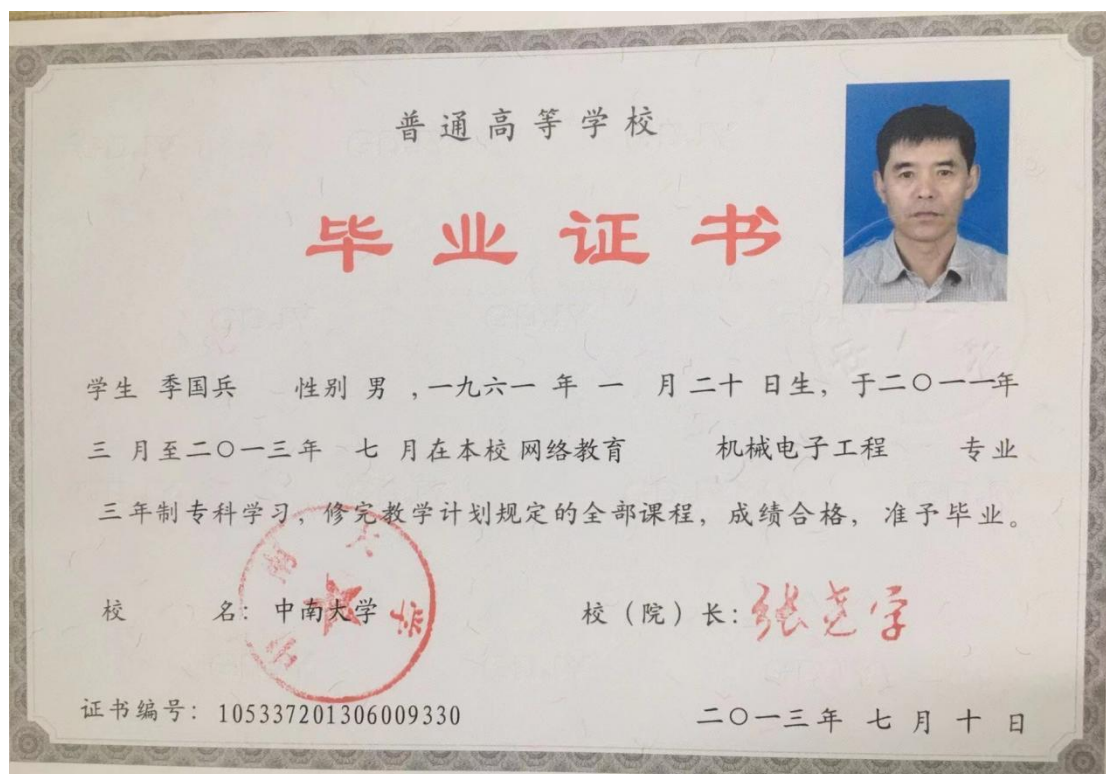 普通高等学校
毕业证书
学生 季国兵 性别 男 ,一九六一 年 一 月 二十 日生，于二〇一一年
三 月至二〇一三年 七 月在本校 网络教育 机械电子工程 专业
三年制专科学习，修完教学计划规定的全部课程，成绩合格，准予毕业。
校 名：中南大学
校（院）长：张尧学
中南大学
证书编号：105337201306009330
二〇一三年 七 月 十 日